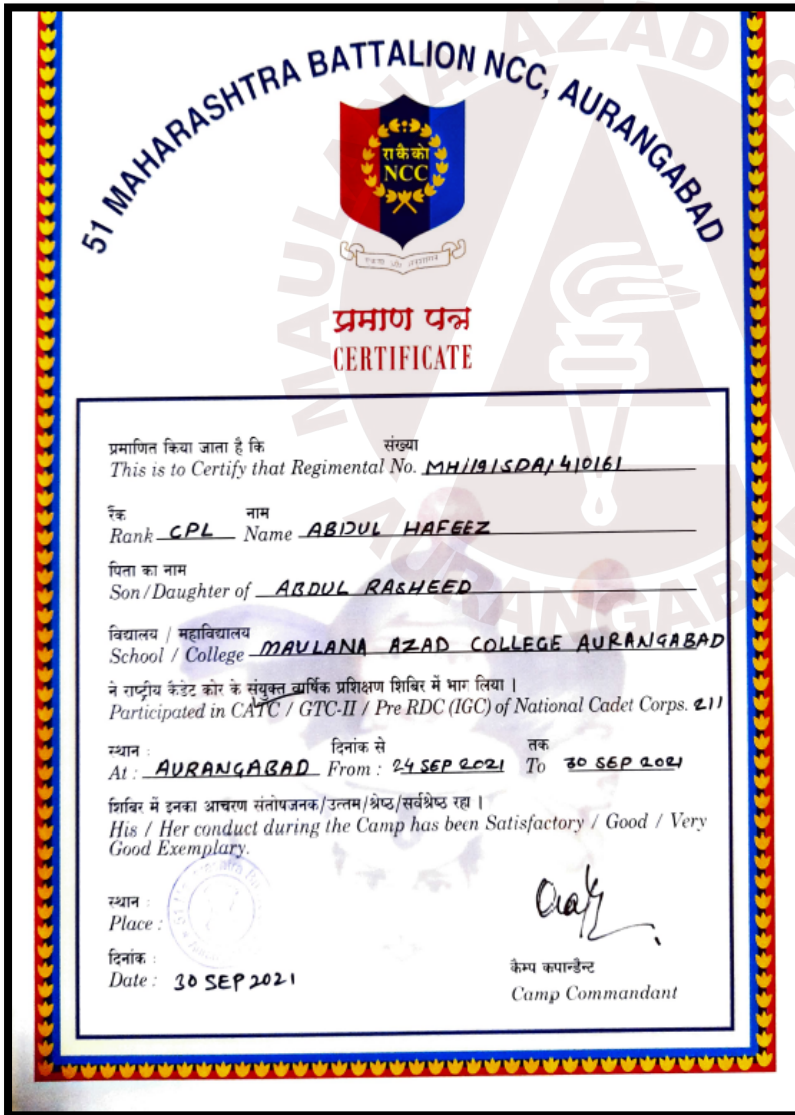 51 MAHARASHTRA BATTALION NCC, AURANGABAD
रा कै को
NCC
एकता और अनुशासन
प्रमाण पत्र
CERTIFICATE
प्रमाणित किया जाता है कि संख्या
This is to Certify that Regimental No. MH/19/SDA/410161
रैंक नाम
Rank CPL Name ABDUL HAFEEZ
पिता का नाम
Son/Daughter of ABDUL RASHEED
विद्यालय / महाविद्यालय
School / College MAULANA AZAD COLLEGE AURANGABAD
ने राष्ट्रीय कैडेट कोर के संयुक्त वार्षिक प्रशिक्षण शिबिर में भाग लिया |
Participated in CATC / GTC-II / Pre RDC (IGC) of National Cadet Corps. 211
स्थान : दिनांक से तक
At : AURANGABAD From : 24 SEP 2021 To 30 SEP 2021
शिबिर में इनका आचरण संतोषजनक/उत्तम/श्रेष्ठ/सर्वश्रेष्ठ रहा |
His / Her conduct during the Camp has been Satisfactory / Good / Very
Good Exemplary.
स्थान :
Place :
दिनांक :
Date : 30 SEP 2021
कैम्प कमान्डैन्ट
Camp Commandant
MAULANA AZAD
AURANGABAD